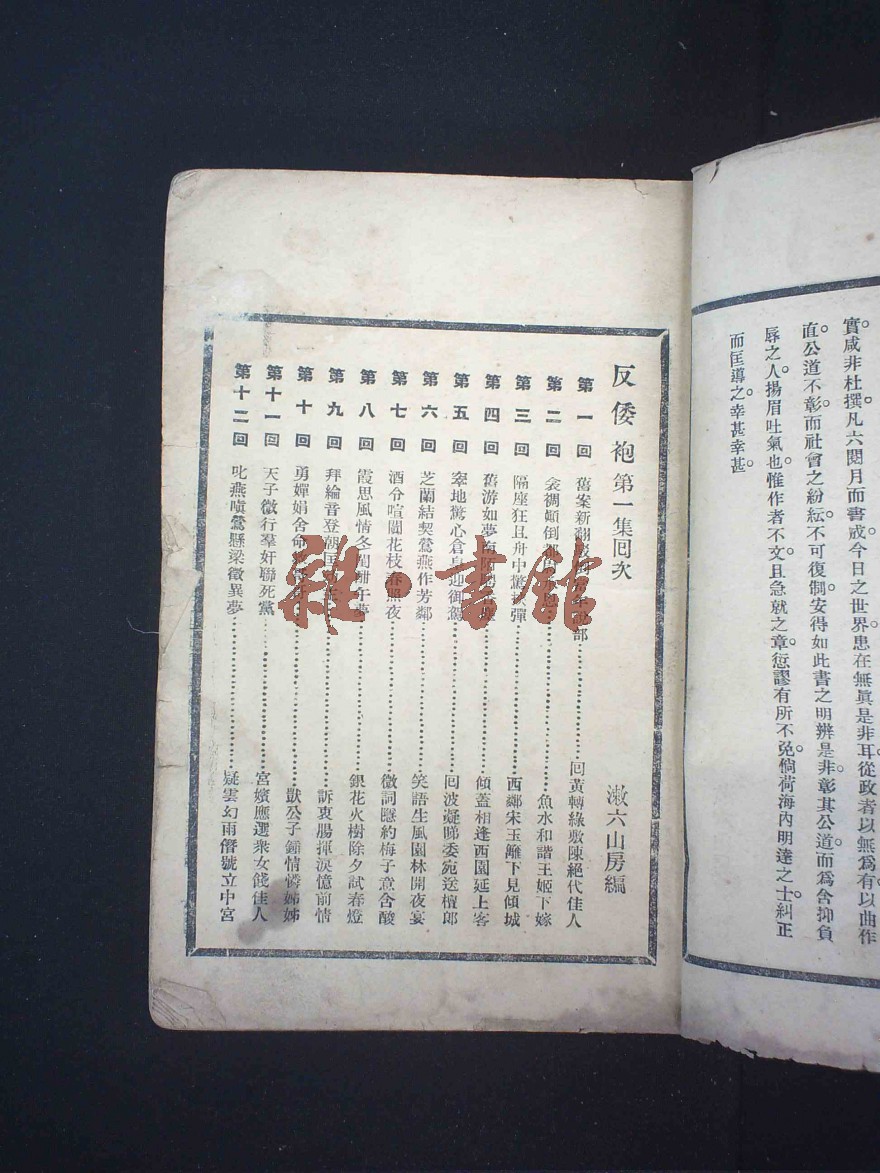 實咸非杜撰。凡六閱月而書成。今日之世界。患在無眞是非耳。從政者以無爲有。以曲作
直。公道不彰。而社會之紛紜。不可復制。安得如此書之明辨是非。彰其公道。而爲含抑負
辱之人。揚眉吐氣也。惟作者不文。且急就之章。愆謬有所不免。倘荷海內明達之士。糾正
而匡導之。幸甚幸甚。
反倭袍第一集回次
漱六山房編
第一回 舊案新翻 部 回黃轉綠敷陳絕代佳人
第二回 衾裯顚倒 魚水和諧王姬下嫁
第三回 隔座狂且舟中驚 彈 西鄰宋玉籬下見傾城
第四回 舊游如夢 傾蓋相逢西園延上客
第五回 窣地驚心倉皇迎御駕 回波凝睇委宛送檀郎
第六回 芝蘭結契鶯燕作芳鄰 笑語生風園林開夜宴
第七回 酒令喧闐花枝春照夜 微詞隱約梅子意含酸
第八回 霞思風情冬閨酣午夢 銀花火樹除夕試春燈
第九回 拜綸音登朝 訴衷腸揮淚憶前情
第十回 勇嬋娟舍命 獃公子鍾情憐姊姊
第十一回 天子微行羣奸聯死黨 宮嬪應選衆女餞佳人
第十二回 叱燕嗔鶯懸梁徵異夢 疑雲幻雨僭號立中宮
雜·書館